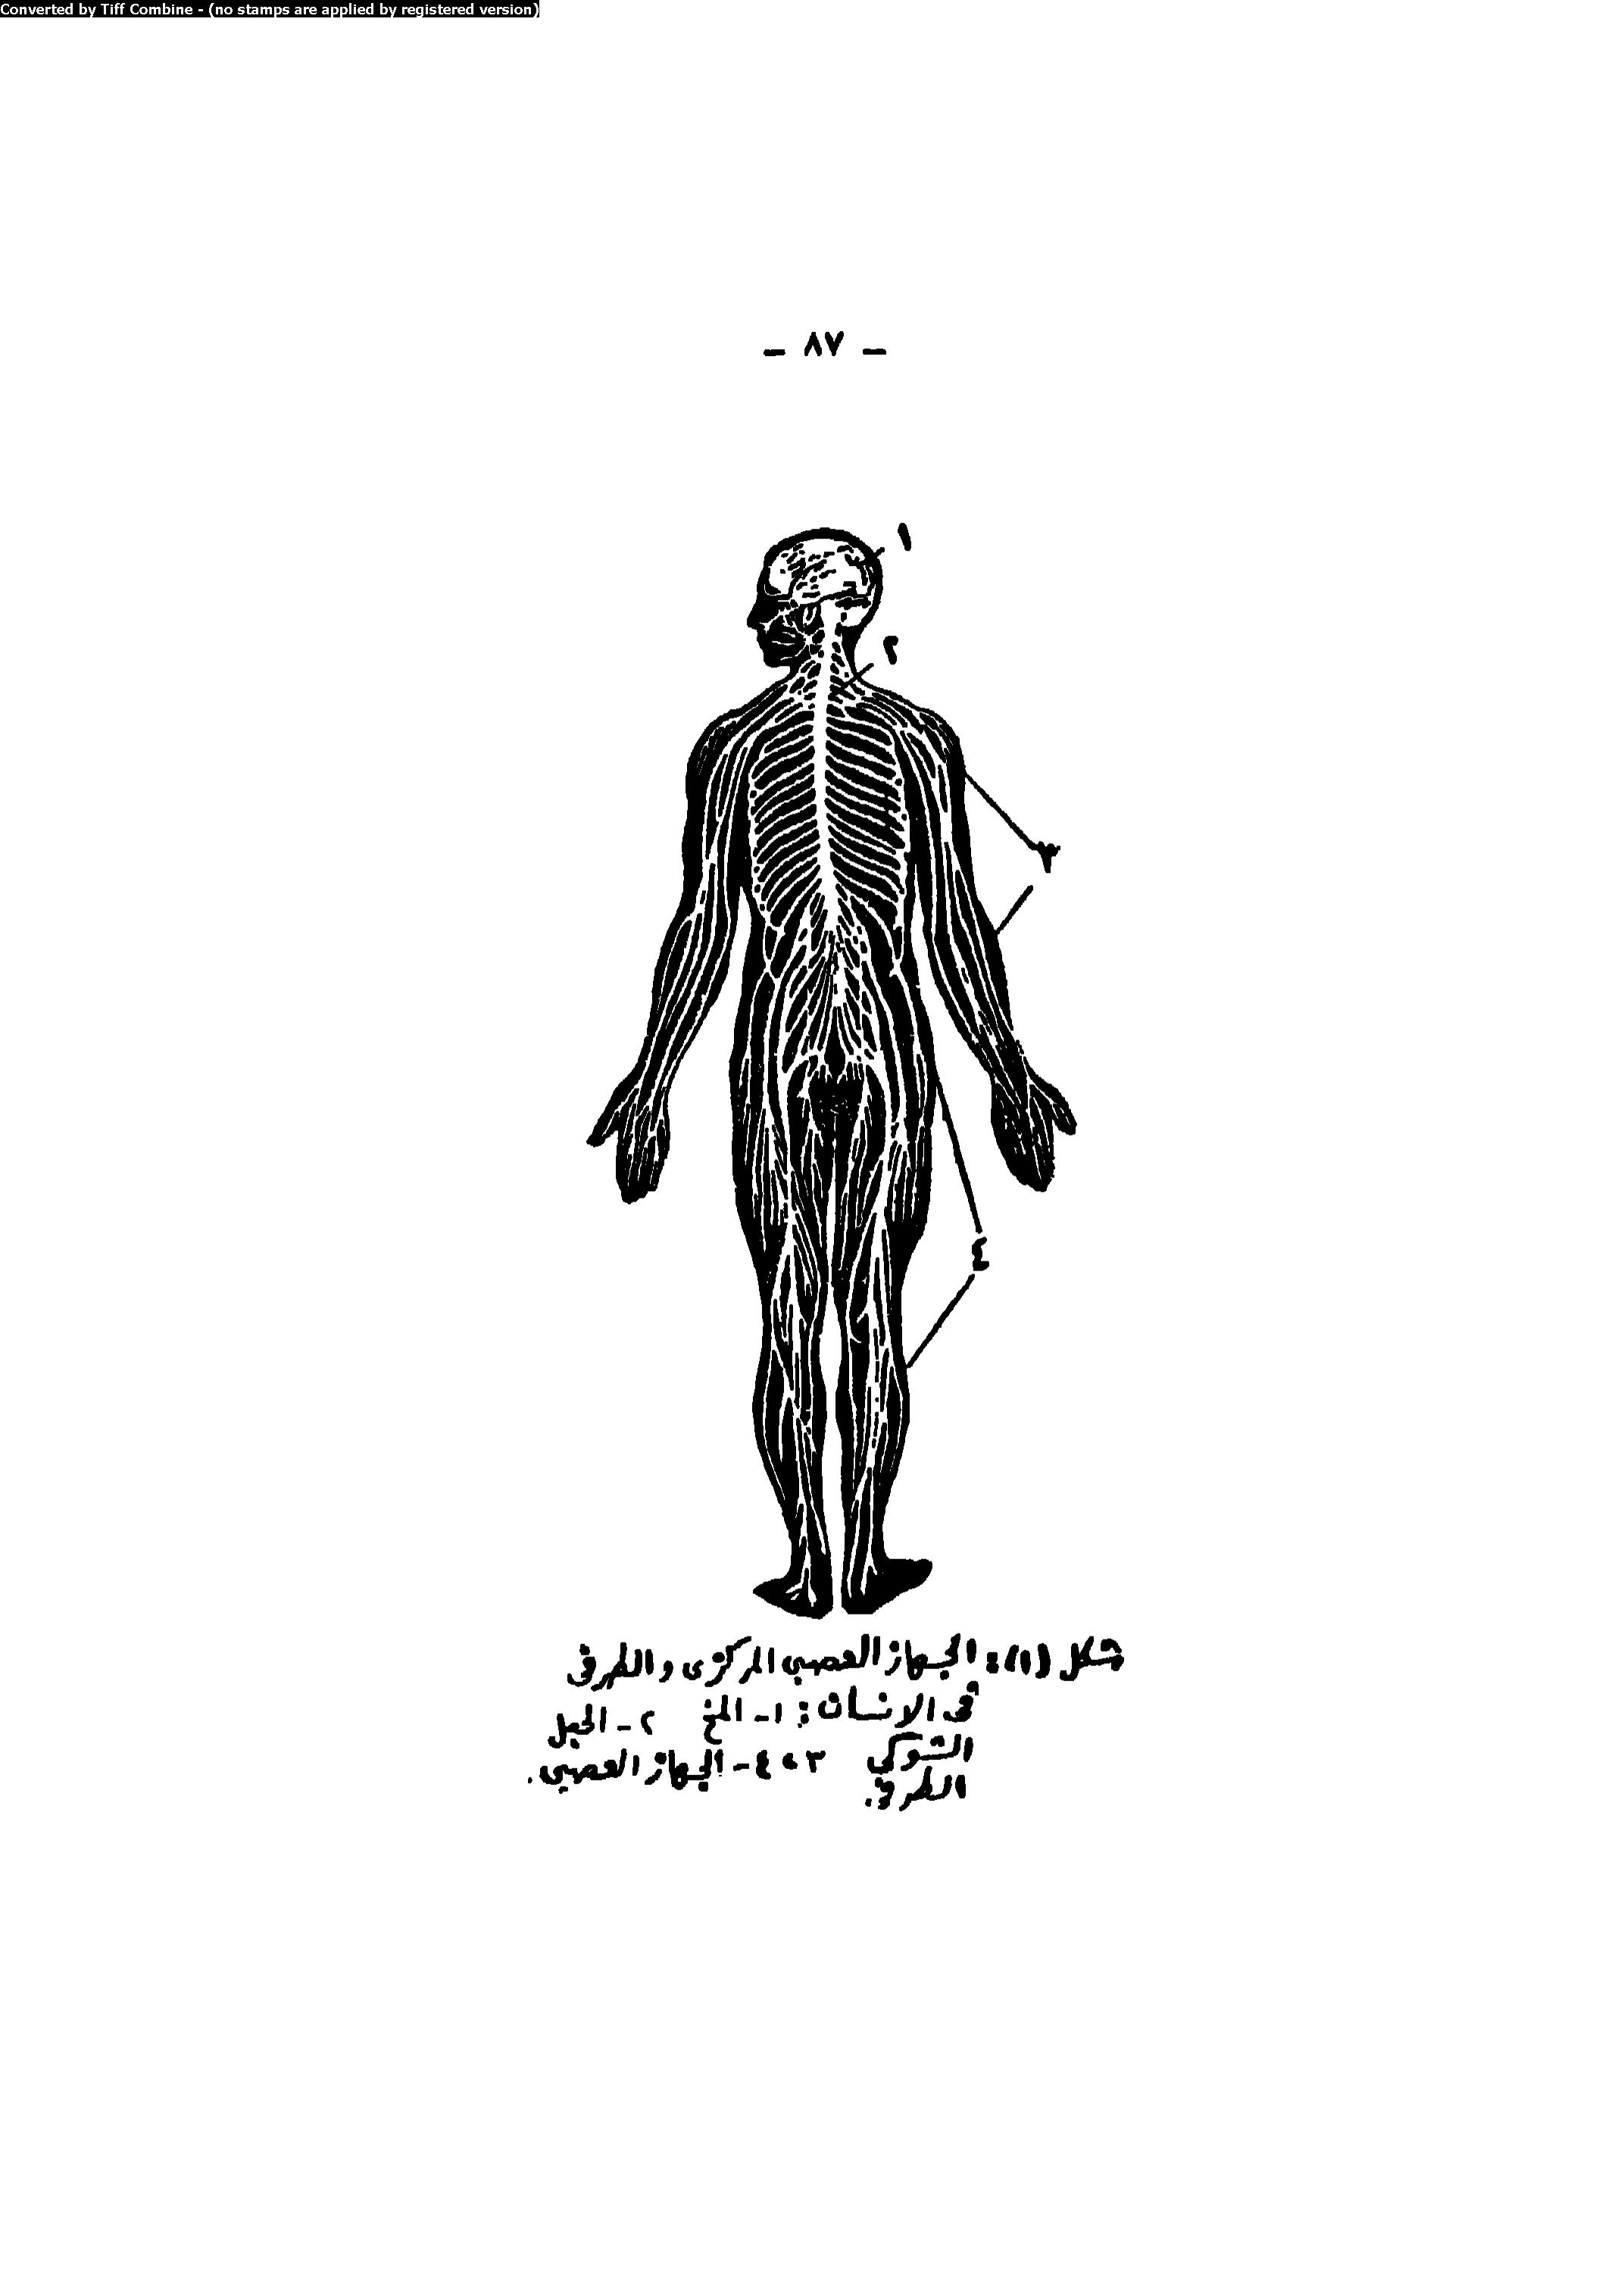 Converted by Tiff Combine - (no stamps are applied by registered version)
- ٨٧ -
١
٢
٣
٤
شكل (١): الجهاز العصبي المركزى والطرفى
فى الانسان: ١- المخ ٢- الحبل
الشوكى ٣،٤- الجهاز العصبى.
الطرفى.